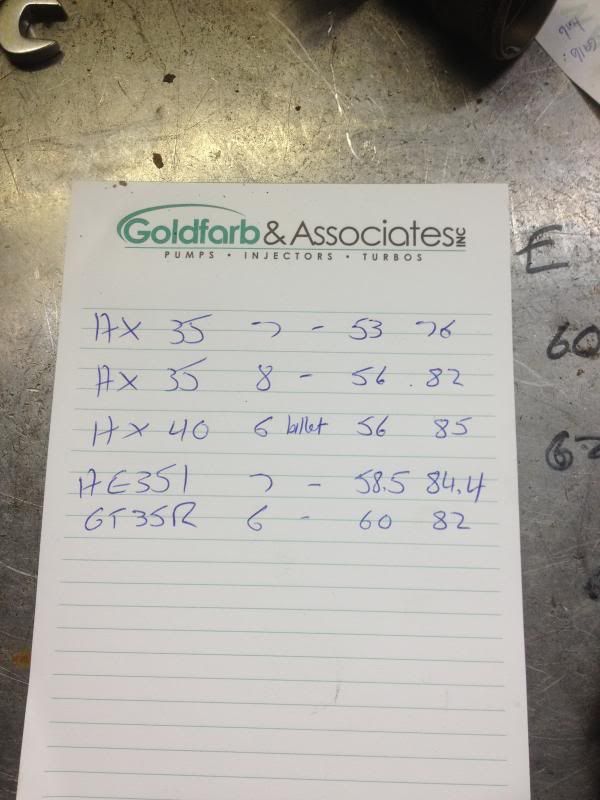 Goldfarb & Associates INC
PUMPS • INJECTORS • TURBOS
E
HX 35 7 - 53 76
60
HX 35 8 - 56 . 82
HX 40 6 billet 56 85
HE351 7 - 58.5 84.4
GT35R 6 - 60 82